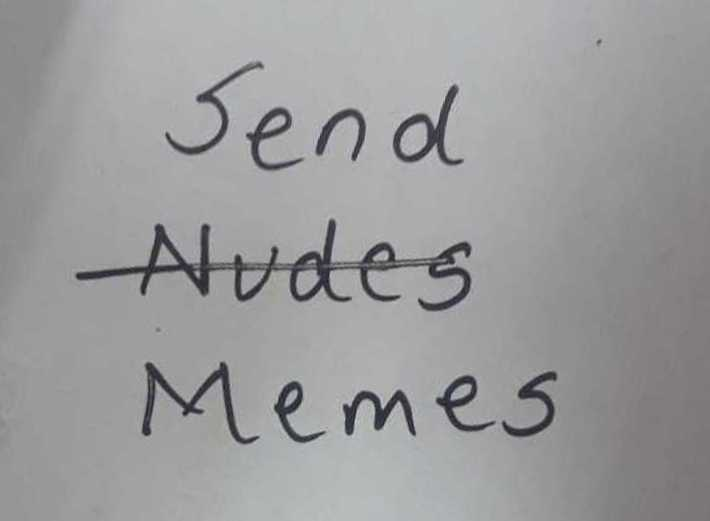 Send
Nudes
Memes